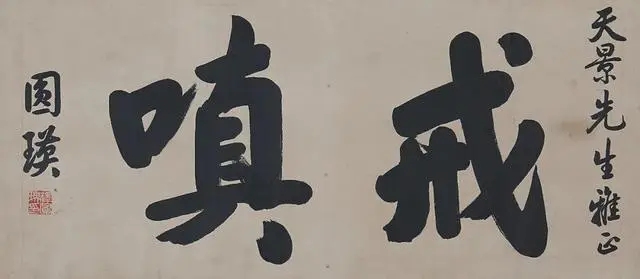 天景先生雅正
戒嗔
圆瑛